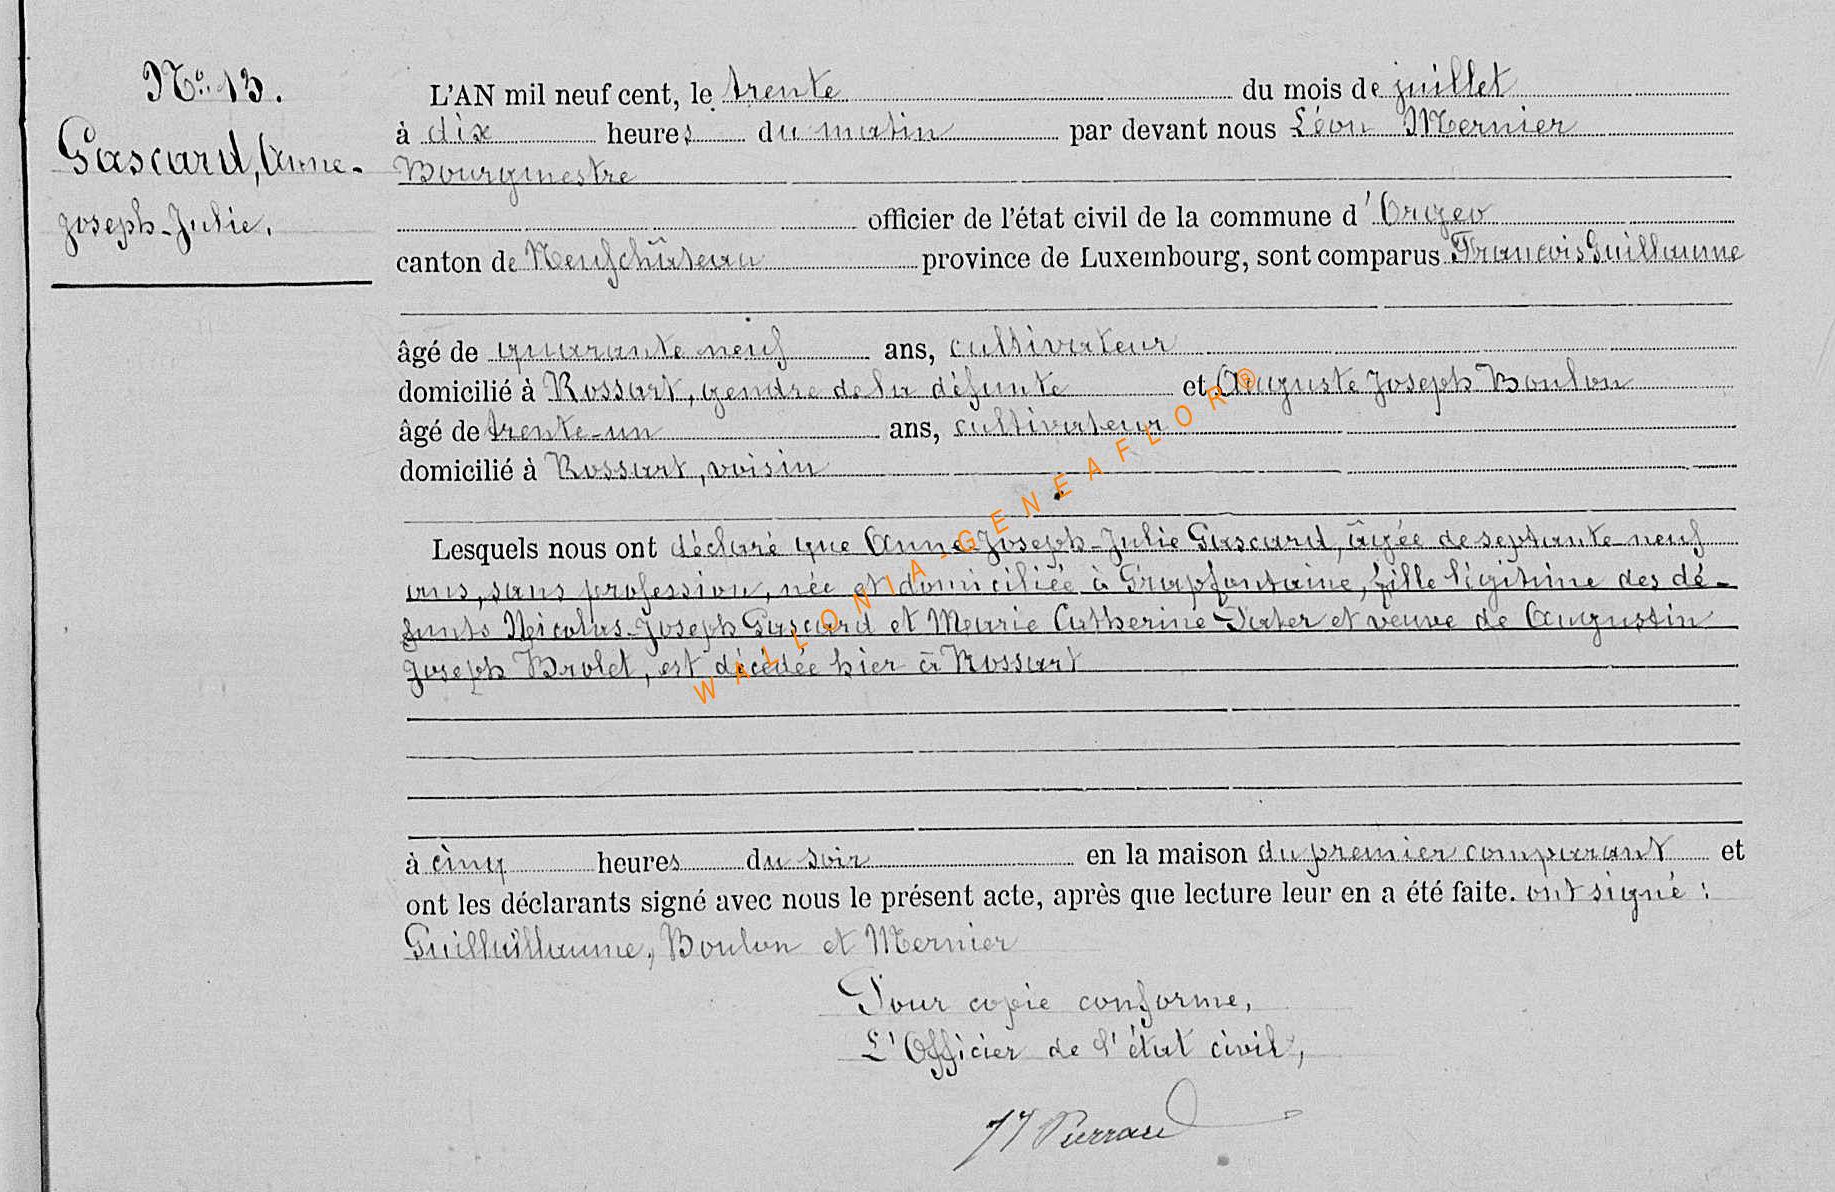 No. 13.
Gascard, Anne-
Joseph-Julie.
L'AN mil neuf cent, le trente du mois de juillet
à dix heures du matin par devant nous Léon Mernier
Bourgmestre
officier de l'état civil de la commune d'Orgeo
canton de Neufchâteau province de Luxembourg, sont comparus François Guillaume
âgé de quarante neuf ans, cultivateur
domicilié à Rossart, gendre de la défunte et Auguste Joseph Boulon
âgé de trente-un ans, cultivateur
domicilié à Rossart, voisin
Lesquels nous ont déclaré que Anne-Joseph-Julie Gascard, âgée de septante-neuf
ans, sans profession, née et domiciliée à Grapfontaine, fille légitime des dé-
funts Nicolas-Joseph Gascard et Marie Catherine et veuve de Augustin
Joseph Brolet, est décédée hier à Rossart
à cinq heures du soir en la maison du premier comparant et
ont les déclarants signé avec nous le présent acte, après que lecture leur en a été faite. ont signé :
Guilluillaume, Boulon et Mernier
Pour copie conforme,
L'Officier de l'état civil,
WALLONIA-GENEAFLOR®